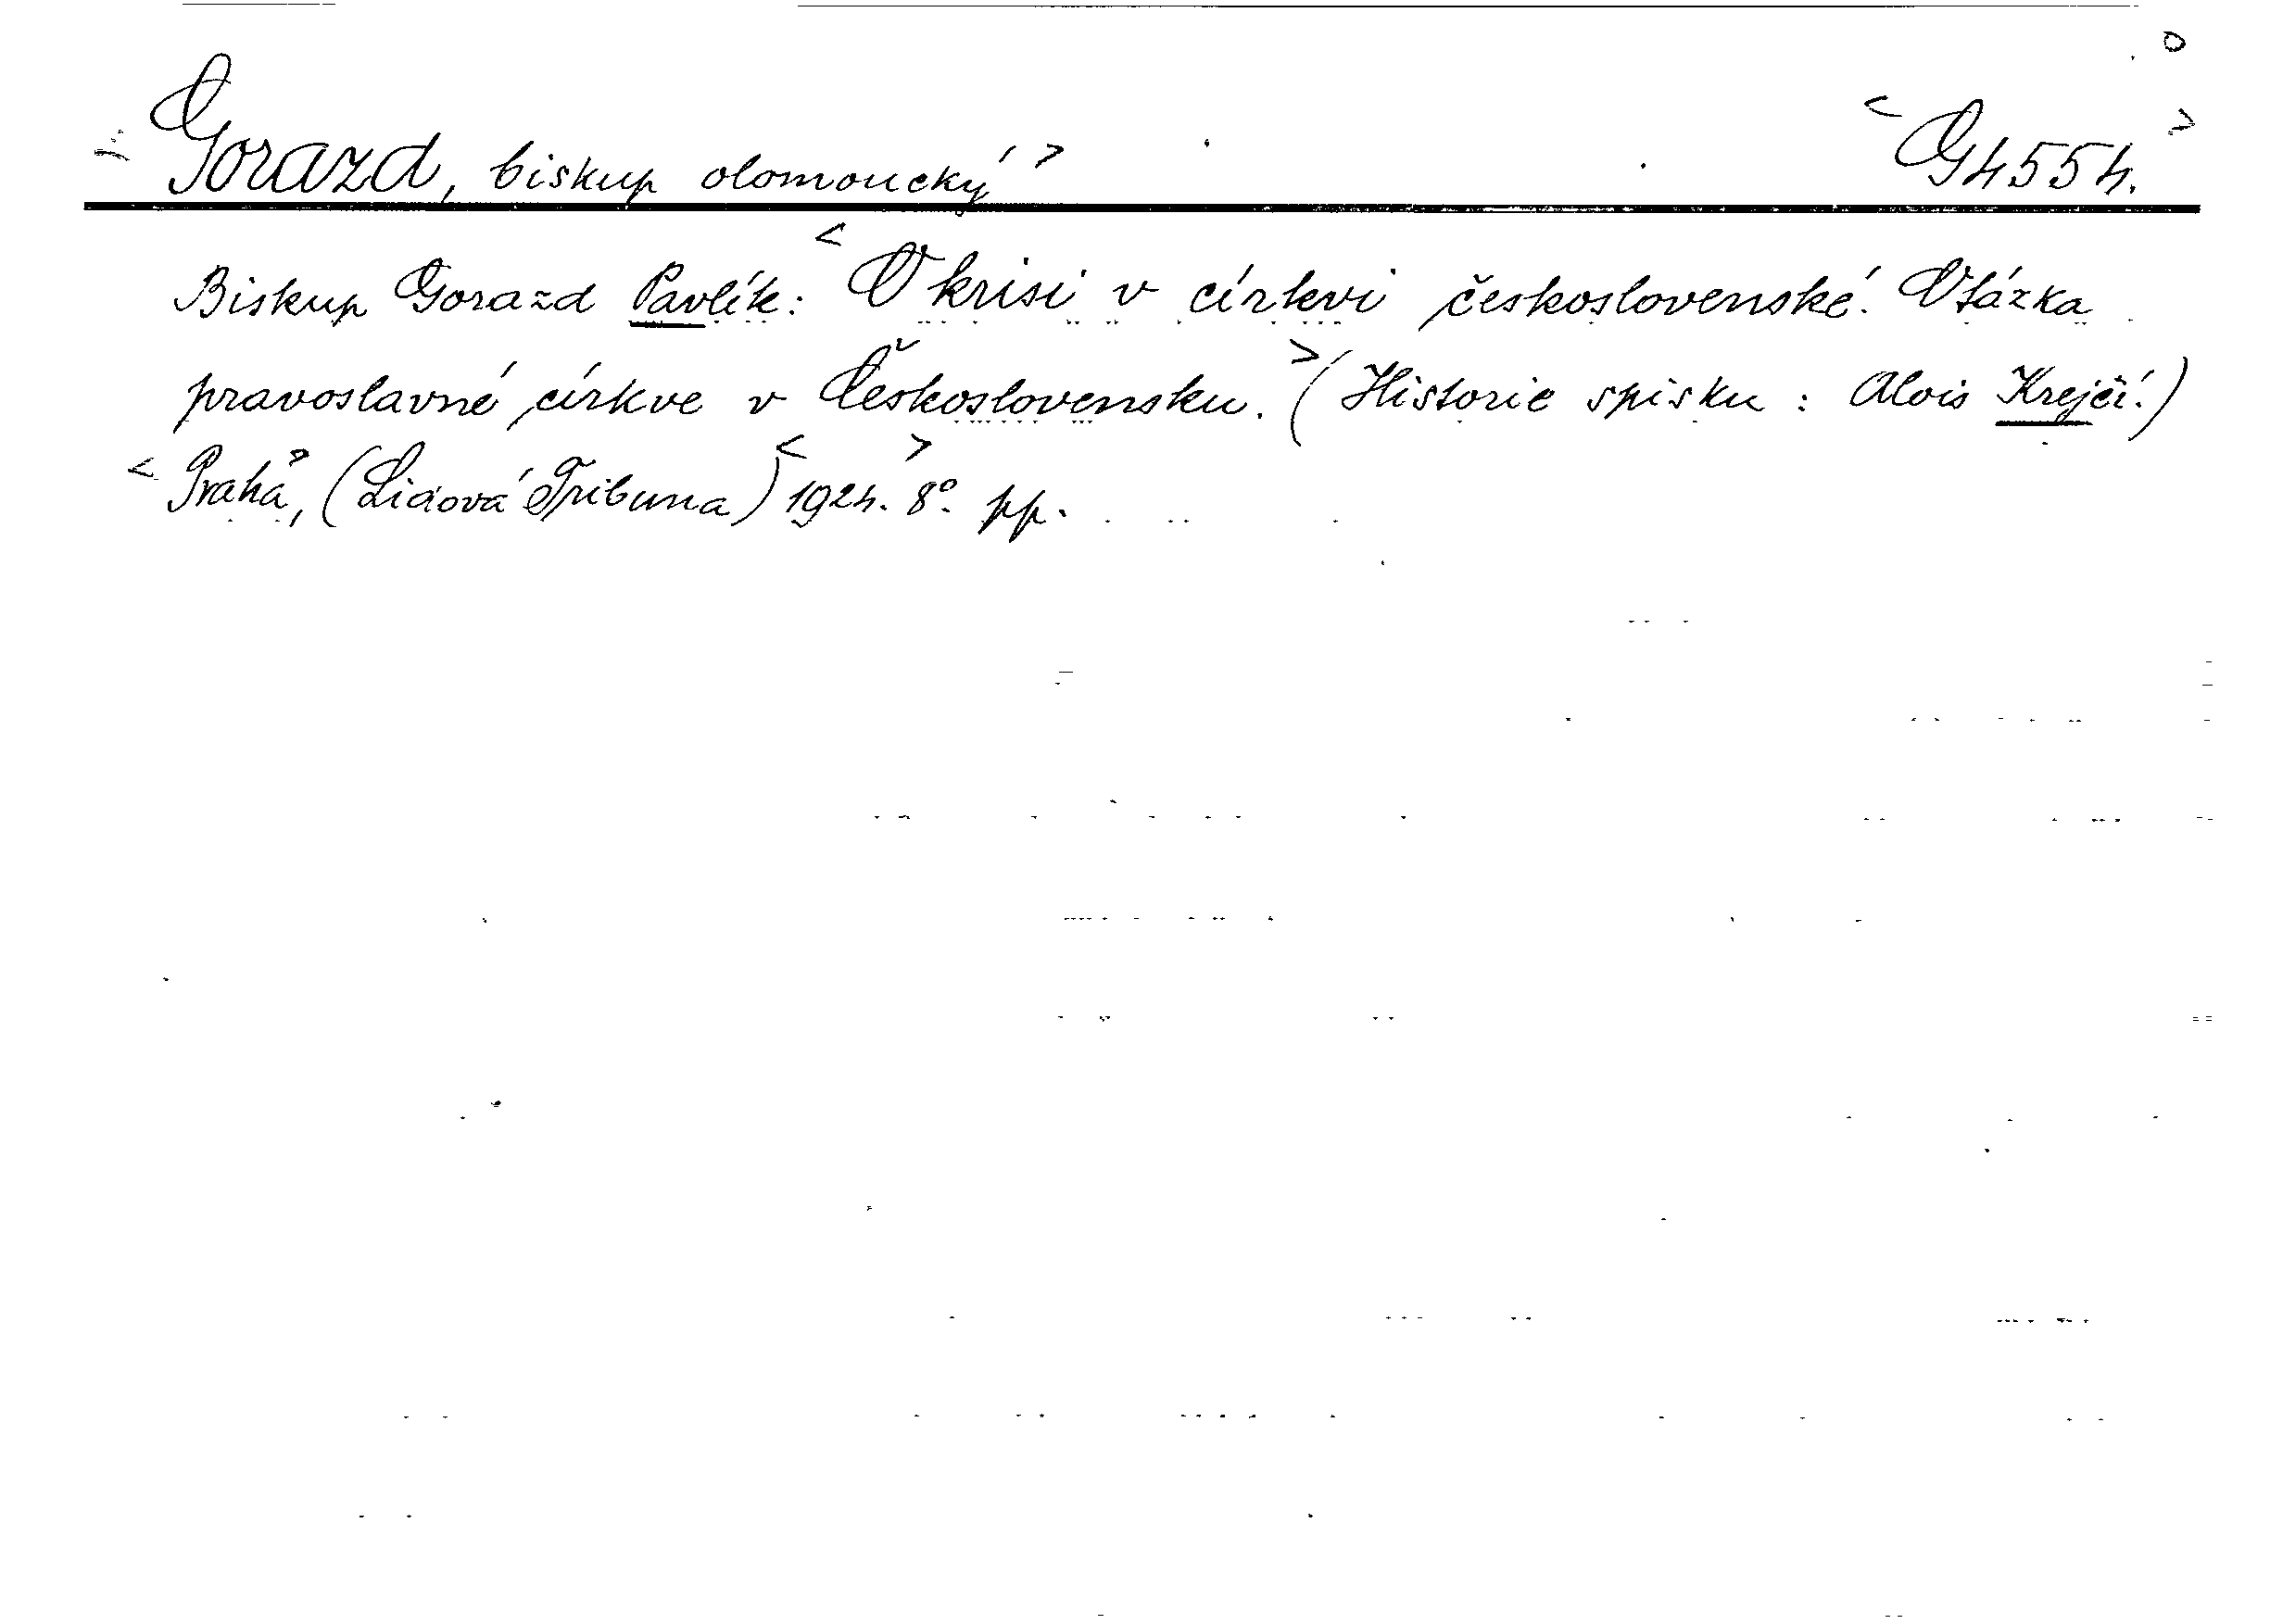 <Gorazd, biskup olomoucký> <G 4554.>
Biskup Gorazd Pavlík: <O krisi v církvi československé. Otázka
pravoslavné církve v Československu.> (Historie spisku: Alois Krejčí.)
<Praha>, (Lidová Tribuna) <1924.> 8° pp.